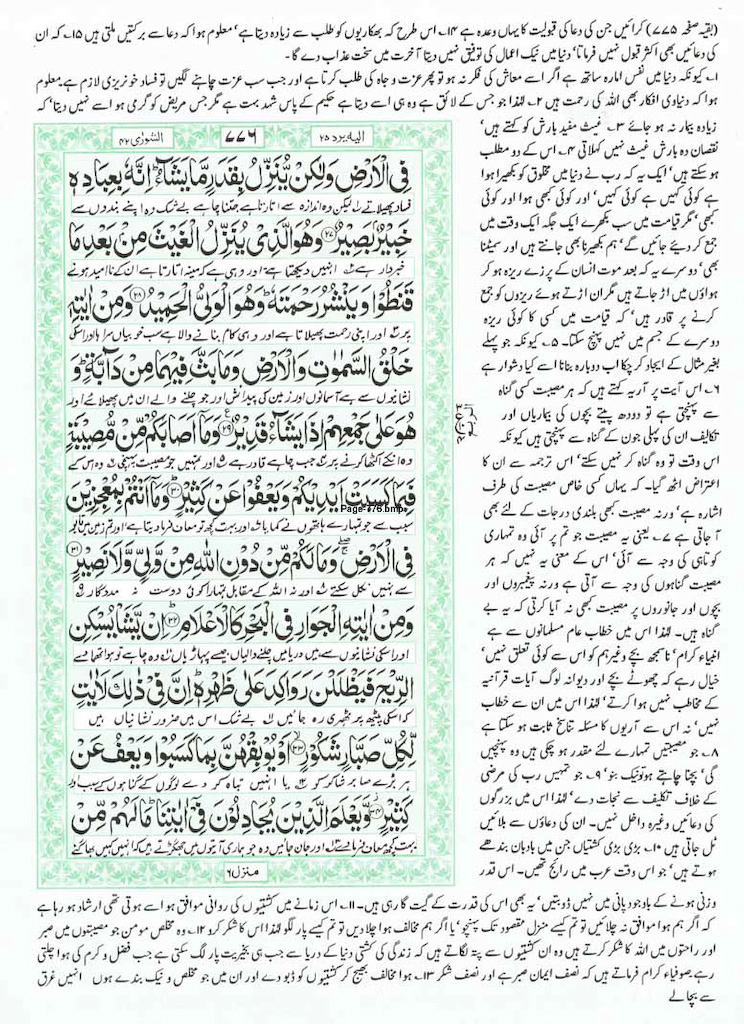 (بقیہ صفحہ ۷۷۵) کرائیں جن کی دعا کی قبولیت کا یہاں وعدہ ہے ۱۴۔ اس طرح کہ بھکاریوں کو طلب سے زیادہ دیتا ہے' معلوم ہوا کہ دعا سے برکتیں ملتی ہیں ۱۵۔ کہ ان
کی دعائیں بھی اکثر قبول نہیں فرماتا' دنیا میں نیک اعمال کی توفیق نہیں دیتا آخرت میں سخت عذاب دے گا۔
۱۔ کیونکہ دنیا میں نفس امارہ ساتھ ہے اگر اسے معاش کی فکر نہ ہو تو پھر عزت و جاہ کی طلب کرتا ہے اور جب سب عزت چاہنے لگیں تو فساد خونریزی لازم ہے۔ معلوم
ہوا کہ دنیاوی افکار بھی اللہ کی رحمت ہیں ۲۔ لہٰذا جو جس کے لائق ہے وہ ہی اسے دیتا ہے حکیم کے پاس شہد بہت ہے مگر جس مریض کو گرمی ہو اسے نہیں دیتا' کہ
زیادہ بیمار نہ ہو جائے ۳۔ غیث مفید بارش کو کہتے ہیں'
نقصان دہ بارش غیث نہیں کہلاتی ۴۔ اس کے دو مطلب
ہو سکتے ہیں' ایک یہ کہ رب نے دنیا میں مخلوق کو بکھیرا ہوا
ہے کوئی کہیں ہے کوئی کہیں' اور کوئی کبھی ہوا اور کوئی
کبھی' مگر قیامت میں سب بکھرے ایک جگہ ایک وقت میں
جمع کر دیئے جائیں گے' ہم بکھیرنا بھی جانتے ہیں اور سمیٹنا
بھی' دوسرے یہ کہ بعد موت انسان کے پرزے ریزہ ہو کر
ہواؤں میں اڑ جاتے ہیں مگر ان اڑتے ہوئے ریزوں کو جمع
کرنے پر قادر ہیں' کہ قیامت میں کسی کا کوئی ریزہ
دوسرے کے جسم میں نہیں پہنچ سکتا۔ ۵۔ کیونکہ جو پہلے
بغیر مثال کے ایجاد کر چکا اب دوبارہ بنانا اسے کیا دشوار ہے
۶۔ اس آیت پر آریہ کہتے ہیں کہ ہر مصیبت کسی گناہ
سے پہنچتی ہے تو دودھ پیتے بچوں کی بیماریاں اور
تکالیف ان کی پہلی جون کے گناہ سے پہنچتی ہیں کیونکہ
اس وقت تو وہ گناہ کر نہیں سکتے' اس ترجمہ سے ان کا
اعتراض اٹھ گیا۔ کہ یہاں کسی خاص مصیبت کی طرف
اشارہ ہے' ورنہ مصیبت کبھی بلندی درجات کے لئے بھی
آ جاتی ہے ۷۔ یعنی یہ مصیبت جو تم پر آئی وہ تمہاری
کوتاہی کی وجہ سے آئی' اس کے معنی یہ نہیں کہ ہر
مصیبت گناہوں کی وجہ سے آتی ہے ورنہ پیغمبروں اور
بچوں اور جانوروں پر مصیبت کبھی نہ آیا کرتی کہ یہ بے
گناہ ہیں۔ لہٰذا اس میں خطاب عام مسلمانوں سے ہے
انبیاء کرام' نا سمجھ بچے وغیرہم کو اس سے کوئی تعلق نہیں'
خیال رہے کہ چھوٹے بچے اور دیوانہ لوگ آیات قرآنیہ
کے مخاطب نہیں ہوا کرتے' لہٰذا اس میں ان سے خطاب
نہیں' نہ اس سے آریوں کا مسئلہ تناسخ ثابت ہو سکتا ہے
۸۔ جو مصیبتیں تمہارے لئے مقدر ہو چکی ہیں وہ پہنچیں
گی' بچنا چاہتے ہو تو نیک بنو' ۹۔ جو تمہیں رب کی مرضی
کے خلاف تکلیف سے نجات دے' لہٰذا اس میں بزرگوں
کی دعائیں وغیرہ داخل نہیں۔ ان کی دعاؤں سے بلائیں
ٹل جاتی ہیں ۱۰۔ بڑی بڑی کشتیاں جن میں بادبان بندھے
ہوتے ہیں' جو اس وقت عرب میں رائج تھیں۔ اس قدر
الیہ یرد ۲۵
۷۷۶
الشورٰی ۴۲
فِی الْاَرْضِ وَلٰكِنْ یُّنَزِّلُ بِقَدَرٍ مَّا یَشَآءُ اِنَّهٗ بِعِبَادِهٖ
فساد پھیلاتے لیکن وہ اندازہ سے اتارتا ہے جتنا چاہے بے شک وہ اپنے بندوں سے
خَبِیْرٌۢ بَصِیْرٌ ﴿۲۷﴾ وَهُوَ الَّذِیْ یُنَزِّلُ الْغَیْثَ مِنْۢ بَعْدِ مَا
خبردار ہے انہیں دیکھتا ہے اور وہی ہے کہ مینہ اتارتا ہے ان کے نا امید ہونے
قَنَطُوْا وَیَنْشُرُ رَحْمَتَهٗ وَهُوَ الْوَلِیُّ الْحَمِیْدُ ﴿۲۸﴾ وَمِنْ اٰیٰتِهٖ
پر اور اپنی رحمت پھیلاتا ہے اور وہی کام بنانے والا ہے سب خوبیوں سراہا اور اسکی
خَلْقُ السَّمٰوٰتِ وَالْاَرْضِ وَمَا بَثَّ فِیْهِمَا مِنْ دَآبَّةٍ وَ
نشانیوں سے ہے آسمانوں اور زمین کی پیدائش اور جو چلنے والے ان میں پھیلائے اور
هُوَ عَلٰی جَمْعِهِمْ اِذَا یَشَآءُ قَدِیْرٌ ﴿۲۹﴾ وَمَاۤ اَصَابَكُمْ مِّنْ مُّصِیْبَةٍ
وہ انکے اکٹھا کرنے پر جب چاہے قادر ہے اور تمہیں جو مصیبت پہنچی وہ اس کے
فَبِمَا كَسَبَتْ اَیْدِیْكُمْ وَیَعْفُوْا عَنْ كَثِیْرٍ ﴿۳۰﴾ وَمَاۤ اَنْتُمْ بِمُعْجِزِیْنَ
Page-776.bmp
سبب سے جو تمہارے ہاتھوں نے کمایا اور بہت کچھ تو معاف فرما دیتا ہے اور تم زمین میں قابو
فِی الْاَرْضِ وَمَا لَكُمْ مِّنْ دُوْنِ اللّٰهِ مِنْ وَّلِیٍّ وَّلَا نَصِیْرٍ ﴿۳۱﴾
سے نہیں نکل سکتے اور نہ اللہ کے مقابل تمہارا کوئی دوست نہ مددگار
وَمِنْ اٰیٰتِهِ الْجَوَارِ فِی الْبَحْرِ كَالْاَعْلَامِ ﴿۳۲﴾ اِنْ یَّشَاْ یُسْكِنِ
اور اسکی نشانیوں سے ہیں دریا میں چلنے والیاں جیسے پہاڑیاں وہ چاہے تو ہوا تھما دے
الرِّیْحَ فَیَظْلَلْنَ رَوَاكِدَ عَلٰی ظَهْرِهٖ اِنَّ فِیْ ذٰلِكَ لَاٰیٰتٍ
کہ اسکی پیٹھ پر ٹھہری رہ جائیں بے شک اس میں ضرور نشانیاں ہیں
لِّكُلِّ صَبَّارٍ شَكُوْرٍ ﴿۳۳﴾ اَوْ یُوْبِقْهُنَّ بِمَا كَسَبُوْا وَیَعْفُ عَنْ
ہر بڑے صابر شاکر کو یا انہیں تباہ کر دے لوگوں کے گناہوں کے سبب اور
كَثِیْرٍ ﴿۳۴﴾ وَّیَعْلَمَ الَّذِیْنَ یُجَادِلُوْنَ فِیْۤ اٰیٰتِنَا مَا لَهُمْ مِّنْ
بہت کچھ معاف فرما دے اور جان جائیں وہ جو ہماری آیتوں میں جھگڑتے ہیں کہ انہیں کہیں بھاگنے
منزل ۶
وزنی ہونے کے باوجود پانی میں نہیں ڈوبتیں' یہ بھی اس کی قدرت کے گیت گا رہی ہیں۔ ۱۱۔ اس زمانے میں کشتیوں کی روانی موافق ہوا سے ہوتی تھی ارشاد ہو رہا ہے
کہ اگر ہم ہوا موافق نہ چلائیں تو تم کیسے منزل مقصود تک پہنچو' یا اگر ہم مخالف ہوا چلا دیں تو تم کیسے پار لگو لہٰذا اس کا شکر کرو ۱۲۔ وہ مخلص مومن جو مصیبتوں میں صبر
اور راحتوں میں اللہ کا شکر کرتے ہیں وہ ان کشتیوں سے پتہ لگاتے ہیں کہ زندگی کی کشتی دنیا کے دریا سے جب ہی بخیریت پار لگ سکتی ہے جب فضل و کرم کی ہوا چلتی
رہے صوفیاء کرام فرماتے ہیں کہ نصف ایمان صبر ہے اور نصف شکر ۱۳۔ ہوا مخالف بھیج کر کشتیوں کو ڈبو دے اور ان میں جو مخلص و نیک بندے ہوں انہیں غرق
سے بچالے